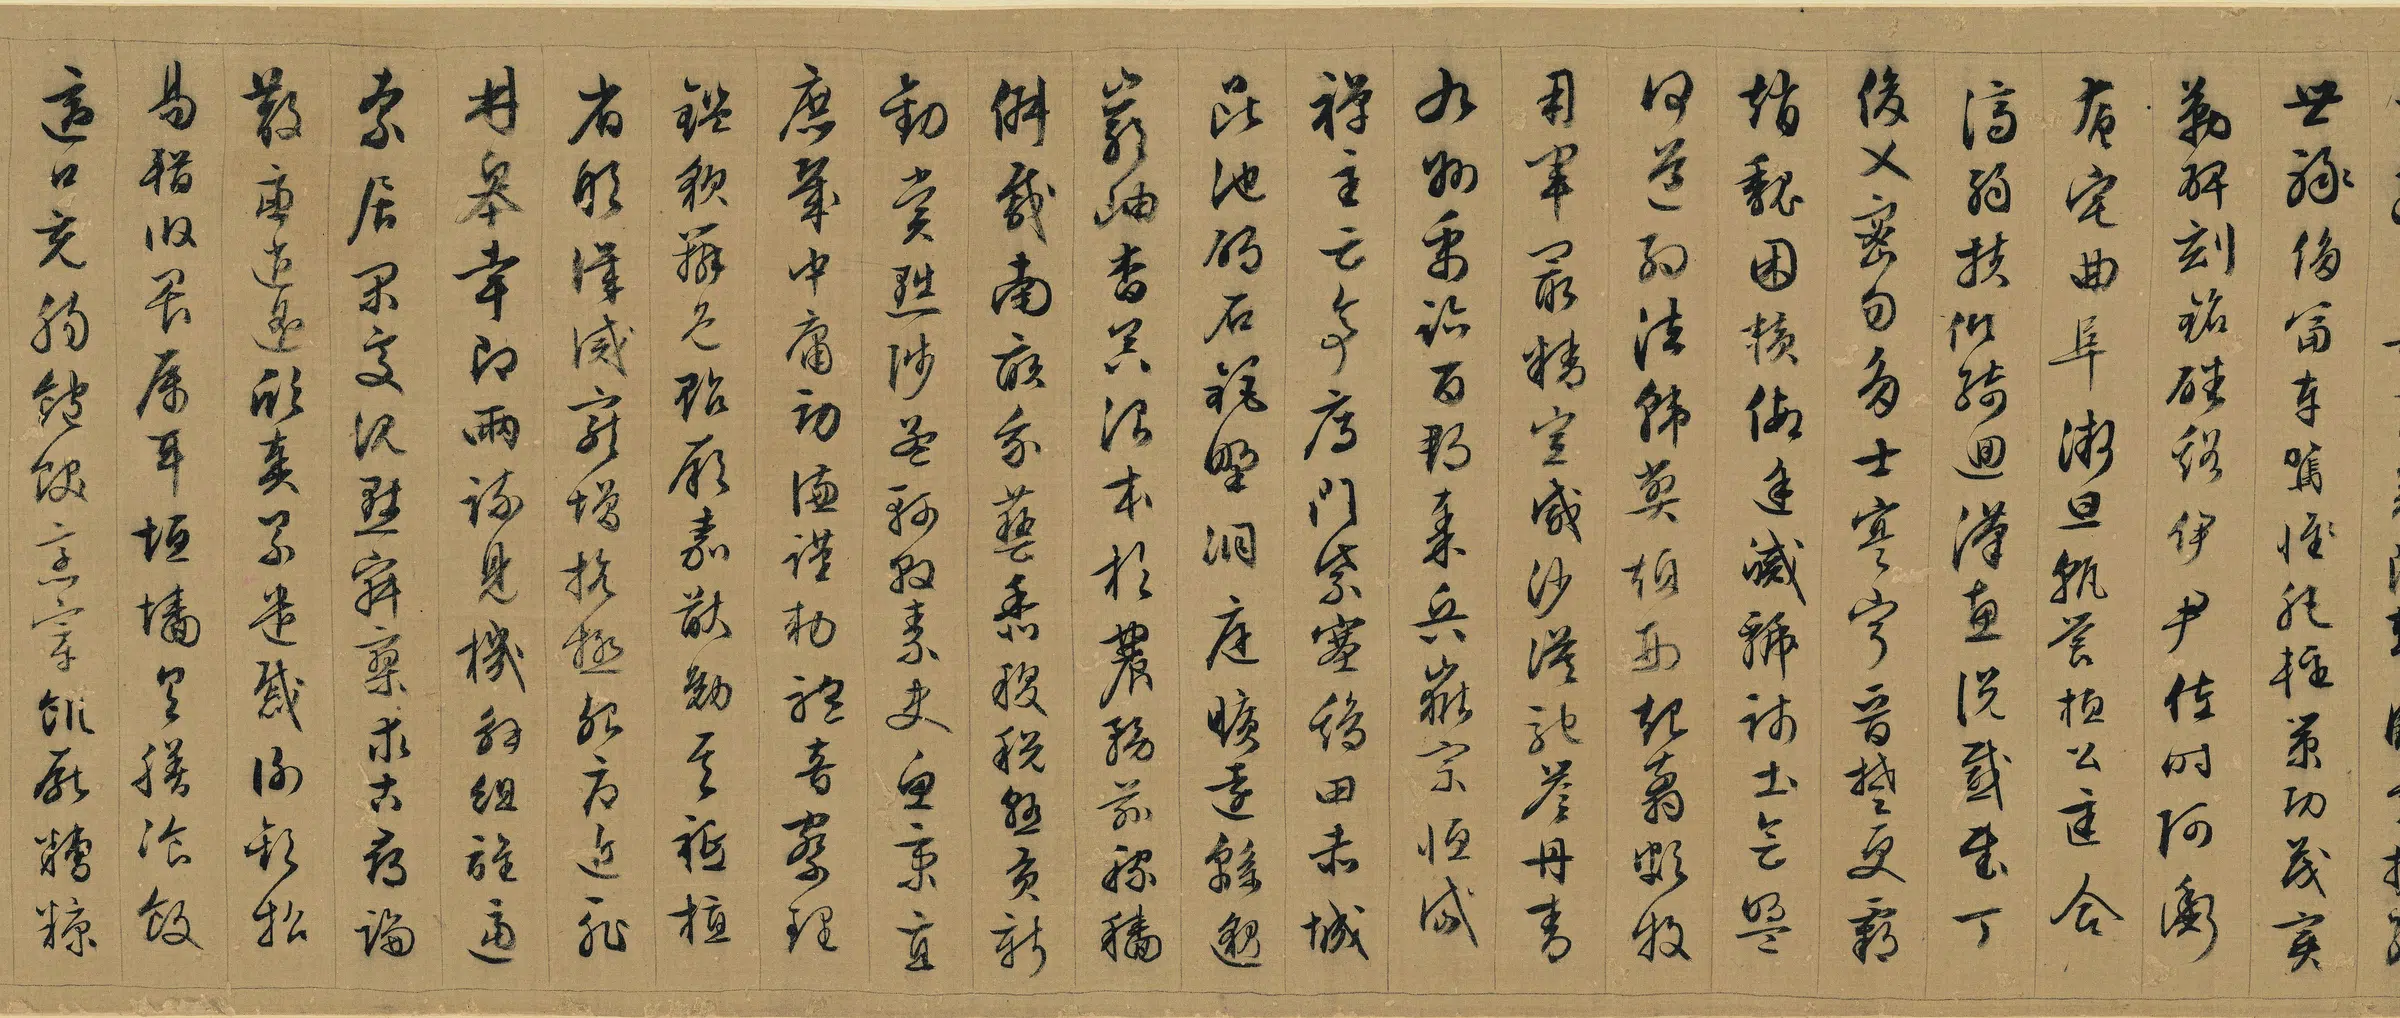 世祿侈富車駕肥輕策功茂實
勒碑刻銘磻谿伊尹佐時阿衡
奄宅曲阜微旦孰營桓公匡合
濟弱扶傾綺迴漢惠說感武丁
俊乂密勿多士寔寧晉楚更霸
趙魏困橫假途滅虢踐土會盟
何遵約法韓弊煩刑起翦頗牧
用軍最精宣威沙漠馳譽丹青
九州禹跡百郡秦并嶽宗恒岱
禪主云亭雁門紫塞雞田赤城
昆池碣石鉅野洞庭曠遠緜邈
巖岫杳冥治本於農務茲稼穡
俶載南畝我藝黍稷稅熟貢新
勸賞黜陟孟軻敦素史魚秉直
庶幾中庸勞謙謹勑聆音察理
鑑貌辨色貽厥嘉猷勉其祗植
省躬譏誡寵增抗極殆辱近恥
林皋幸即兩疏見機解組誰逼
索居閑處沉默寂寥求古尋論
散慮逍遙欣奏累遣慼謝歡招
易輶攸畏屬耳垣牆具膳飡飯
適口充腸飽飫烹宰飢厭糟糠